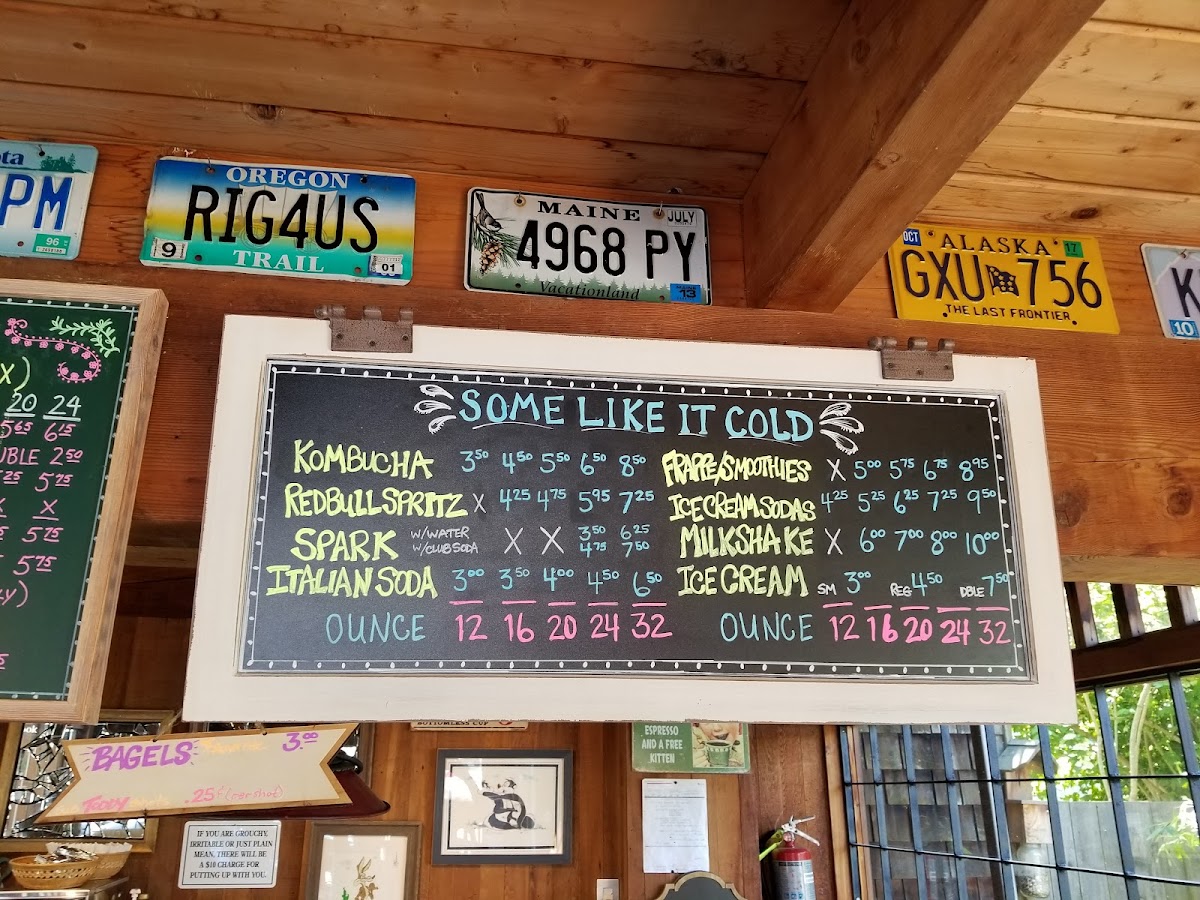 ota
PM
96
OREGON
RIG4US
9
TRAIL
01
MAINE
JULY
4968 PY
Vacationland
13
OCT
ALASKA
17
GXU 756
THE LAST FRONTIER
K
10
X)
20 24
5⁶⁵ 6¹⁵
UBLE 2⁵⁰
5⁷⁵
X
5⁷⁵
5⁷⁵
SOME LIKE IT COLD
KOMBUCHA 3⁵⁰ 4⁵⁰ 5⁵⁰ 6⁵⁰ 8⁵⁰
REDBULL SPRITZ X 4²⁵ 4⁷⁵ 5⁹⁵ 7²⁵
SPARK W/WATER X X 3⁵⁰ 6²⁵
W/CLUB SODA 4⁷⁵ 7⁵⁰
ITALIAN SODA 3⁰⁰ 3⁵⁰ 4⁰⁰ 4⁵⁰ 6⁵⁰
OUNCE 12 16 20 24 32
FRAPPE/SMOOTHIES X 5⁰⁰ 5⁷⁵ 6⁷⁵ 8⁹⁵
ICE CREAM SODAS 4²⁵ 5²⁵ 6²⁵ 7²⁵ 9⁵⁰
MILKSHAKE X 6⁰⁰ 7⁰⁰ 8⁰⁰ 10⁰⁰
ICE CREAM SM 3⁰⁰ REG 4⁵⁰ DBLE 7⁵⁰
OUNCE 12 16 20 24 32
BAGELS 3.⁰⁰
.25¢
BOTTOMLESS CUP
ESPRESSO
AND A FREE
KITTEN
IF YOU ARE GROUCHY,
IRRITABLE OR JUST PLAIN
MEAN, THERE WILL BE
A $10 CHARGE FOR
PUTTING UP WITH YOU.